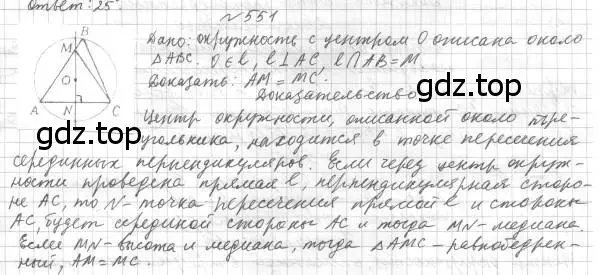 Ответ: 25°
№551
Дано: окружность с центром O описана около
ΔABC. O∈ℓ, ℓ⊥AC, ℓ∩AB=M.
Доказать: AM=MC.
Доказательство
Центр окружности, описанной около тре-
угольника, находится в точке пересечения
серединных перпендикуляров. Если через центр окруж-
ности проведена прямая ℓ, перпендикулярная сторо-
не AC, то N-точка пересечения прямой ℓ и стороны
AC, будет серединой стороны AC и тогда MN-медиана.
Если MN-высота и медиана, тогда ΔAMC-равнобедрен-
ный, AM=MC.
B
M
O
A
N
C
gdz.top
gdz.top
gdz.top
gdz.top